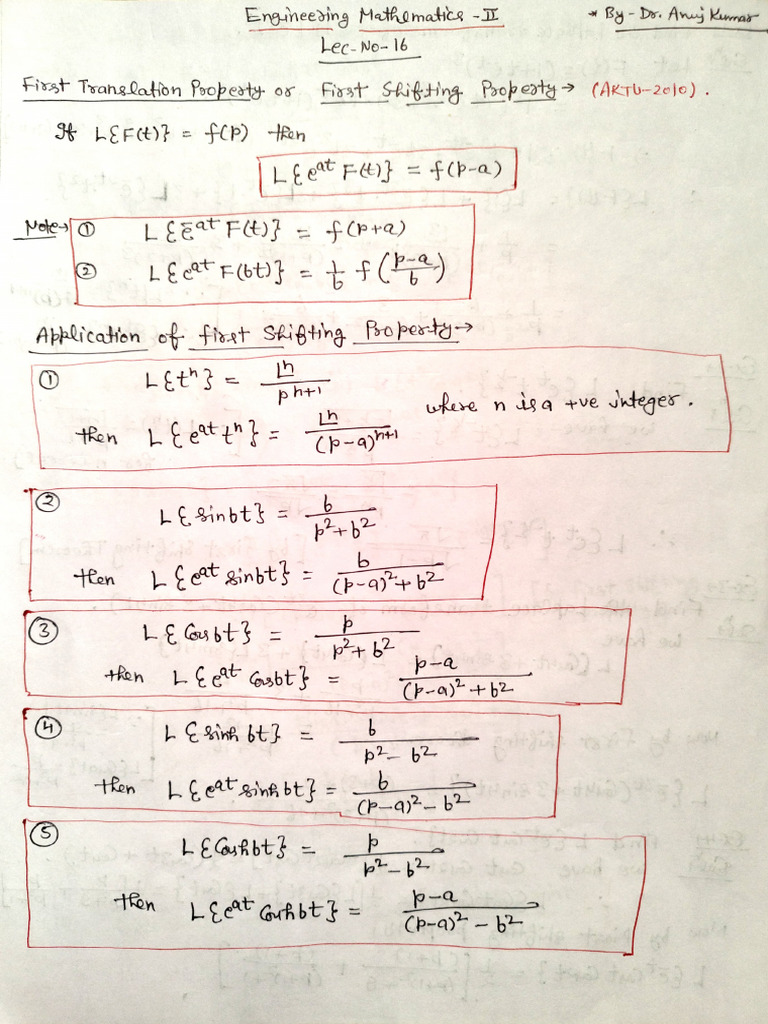 Engineering Mathematics - II
* By - Dr. Anuj Kumar
Lec-No-16
First Translation Property or First Shifting Property → (AKTU-2010).
If L{F(t)} = f(p) then
L{e^{at} F(t)} = f(p-a)
Note → ① L{e^{-at} F(t)} = f(p+a)
② L{e^{at} F(bt)} = 1/b f((p-a)/b)
Application of first Shifting Property →
① L{t^n} = ⌊n / p^{n+1}
where n is a +ve integer.
then L{e^{at} t^n} = ⌊n / (p-a)^{n+1}
② L{sinbt} = b / (p²+b²)
then L{e^{at} sinbt} = b / ((p-a)²+b²)
③ L{Cosbt} = p / (p²+b²)
then L{e^{at} Cosbt} = (p-a) / ((p-a)²+b²)
④ L{sinhbt} = b / (p²-b²)
then L{e^{at} sinhbt} = b / ((p-a)²-b²)
⑤ L{Coshbt} = p / (p²-b²)
then L{e^{at} Coshbt} = (p-a) / ((p-a)²-b²)